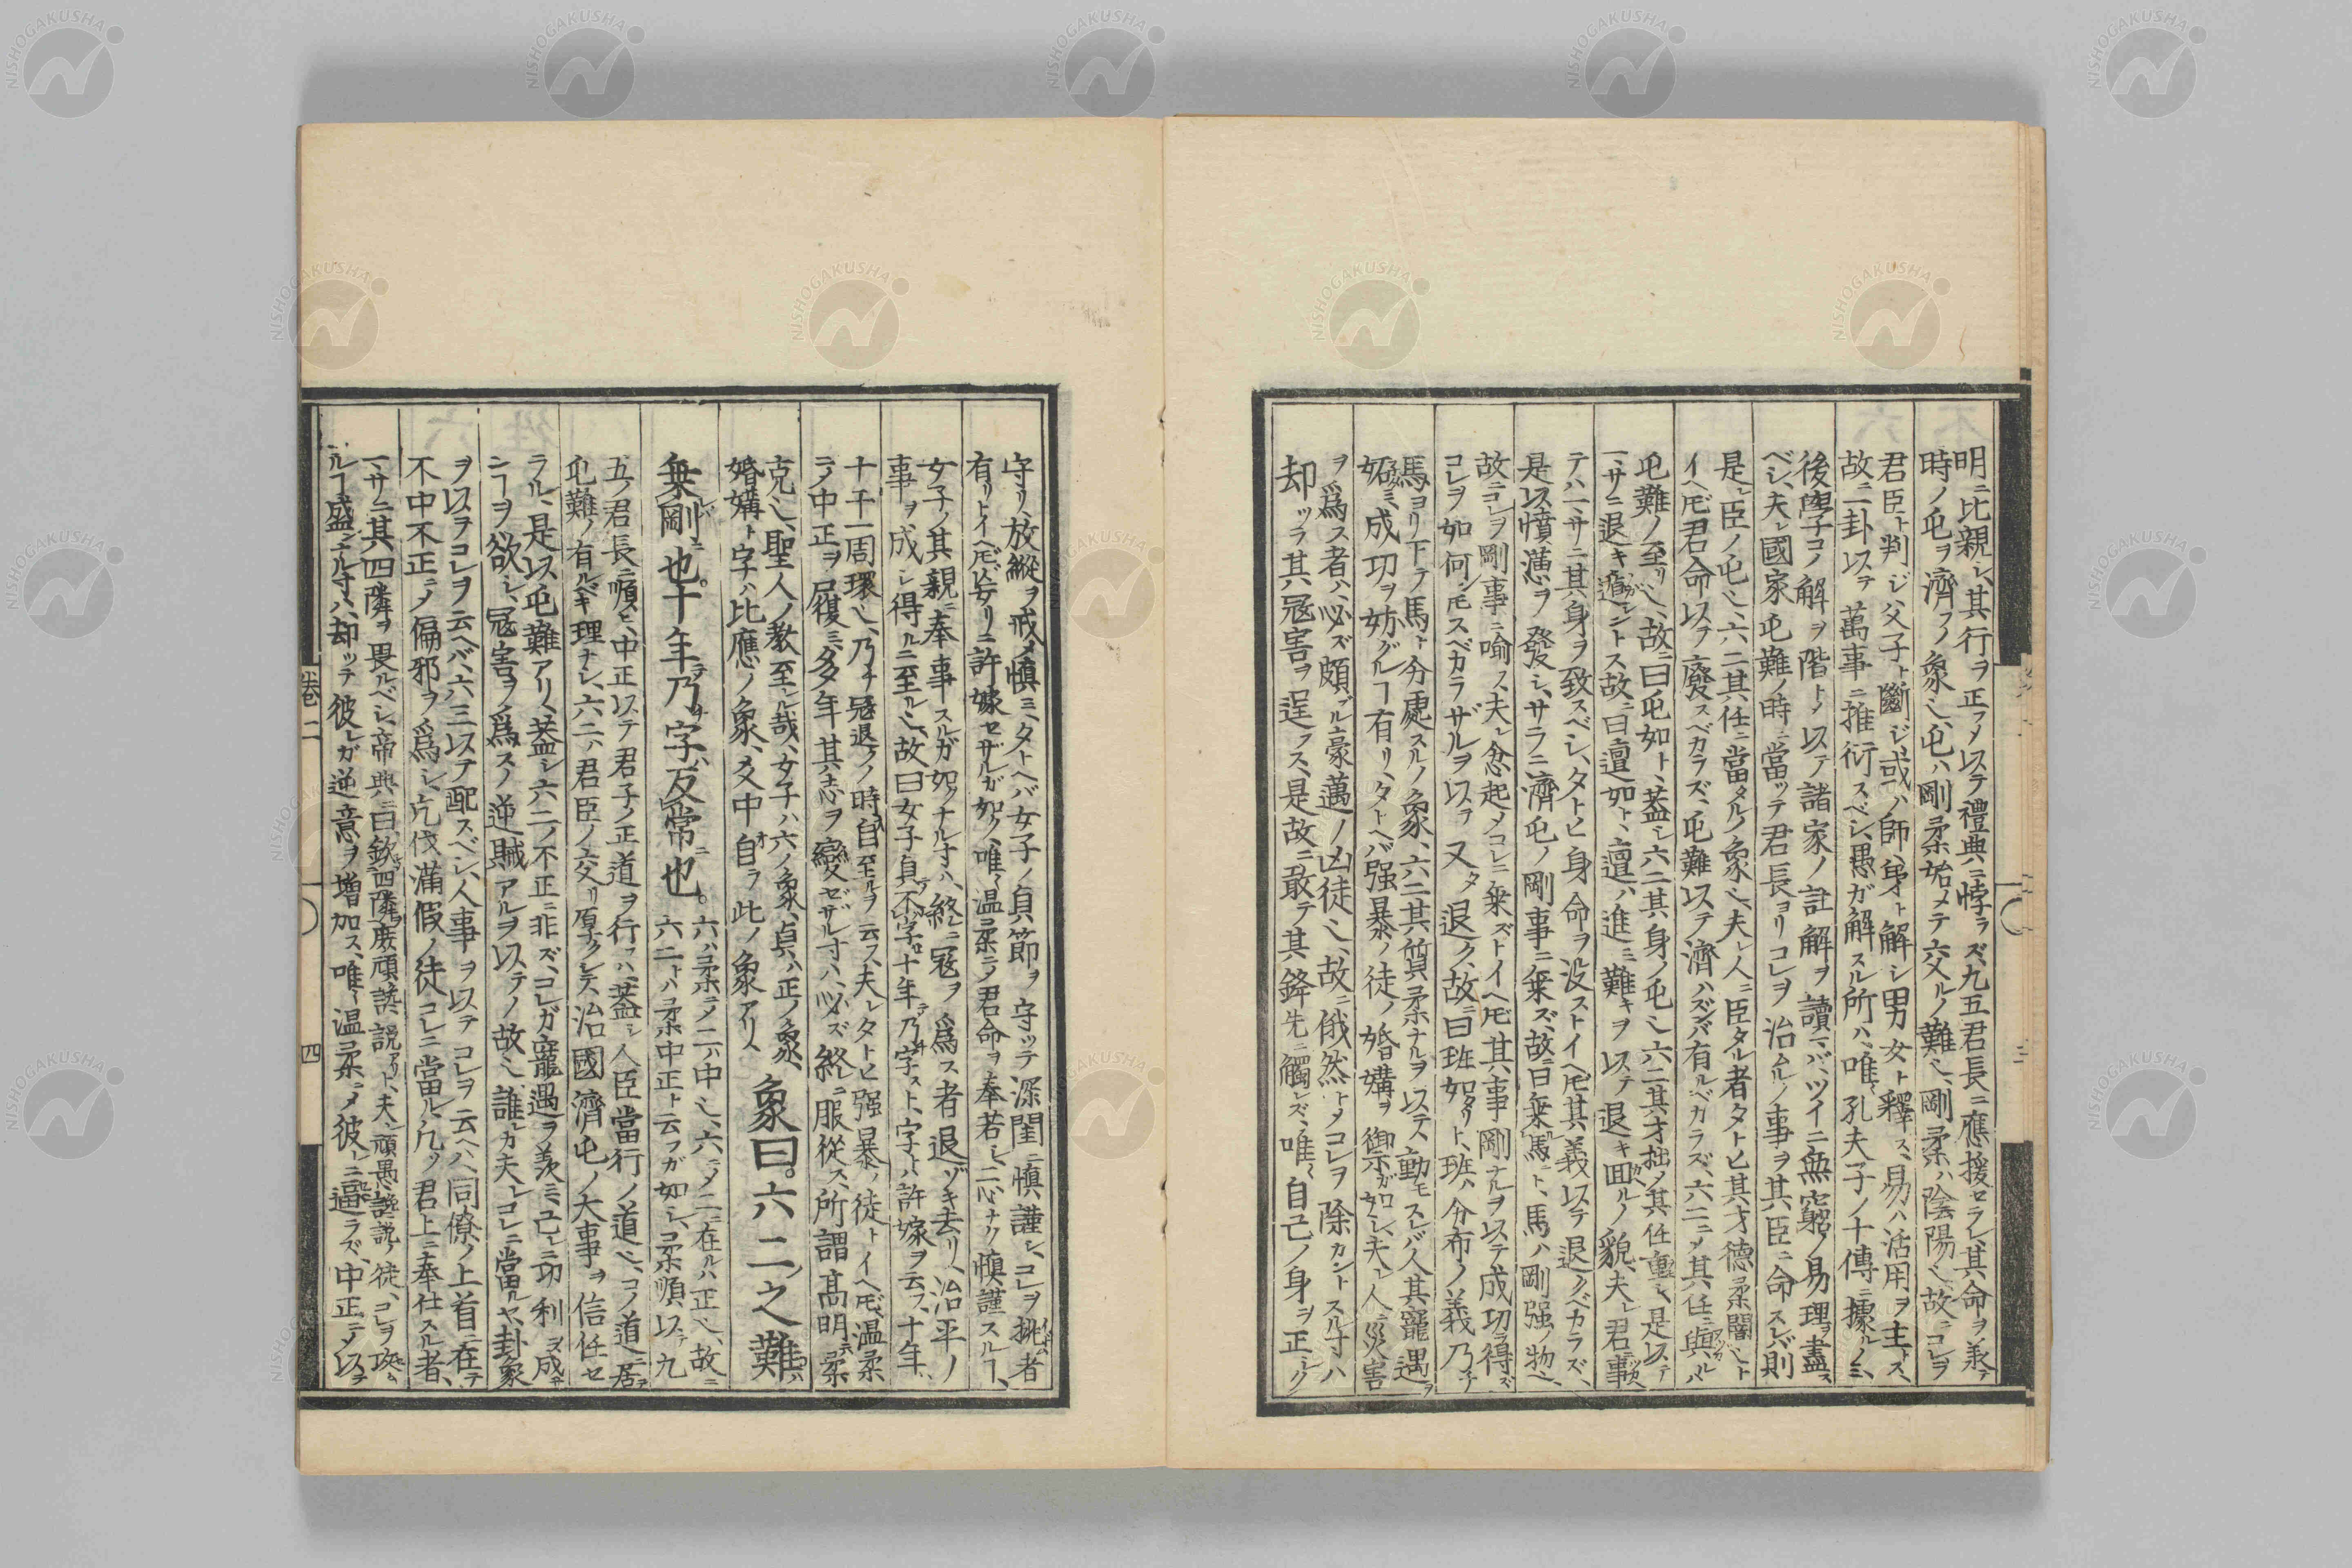 明ニ比親シ、其行ヲ正フメ以テ禮典ニ悖ラズ、九五君長ニ應援セラレ、其命ヲ承テ
時ノ屯ヲ濟フノ象也、屯ハ剛柔始メテ交ルノ難也、剛柔ハ陰陽也、故ニコレヲ
君臣ト判ジ父子ト斷ジ或ハ師弟ト解シ男女ト釋ス、易ハ活用ヲ主トス、
故ニ一卦以テ萬事ニ推衍スベシ、愚ガ解スル所ハ、唯孔夫子ノ十傳ニ據ルノミ、
後學コノ解ヲ階トメ以テ諸家ノ註解ヲ讀マバ、ツイニ無窮ノ易理ヲ盡ス
ベシ、夫レ國家屯難ノ時ニ當ッテ君長ヨリコレヲ治ムルノ事ヲ其臣ニ命スレバ則
是レ臣ノ屯也、六二其任ニ當タルノ象也、夫レ人ニ臣タル者タトヒ其才德柔闇也ト
イヘ𪜈君命以テ廢スベカラズ、屯難以テ濟ハズンバ有ルベカラズ、六二ニメ其任ニ與ルハ
屯難ノ至リ也、故ニ曰屯如ト、蓋シ六二其身ノ屯也六二其才拙ノ其任重シ、是以テ
一サニ退キ遁ントス故ニ曰邅如ト、邅ハ進ミ難キヲ以テ退キ囘ルノ貌、夫レ君事
テハ一サニ其身ヲ致スベシ、タトヒ身命ヲ没ストイヘ𪜈其義以テ退クベカラズ、
是以憤懣ヲ發シ、サラニ濟屯ノ剛事ニ乗ズ、故ニ曰乗馬ト、馬ハ剛强ノ物也、
故ニコレヲ剛事ニ喻ス、夫レ忿起メコレニ乗ズトイヘ𪜈其事剛ナルヲ以テ成功ヲ得ズ
コレヲ如何ン𪜈スベカラザルヲ以テ又タ退ク、故ニ曰班如タリト、班ハ分布ノ義乃チ
馬ヨリ下テ馬ト分處スルノ象、六二其質柔ナルヲ以テス、動モスレバ人其寵遇ヲ
妬ミ成功ヲ妨グルヿ有リ、タトヘバ强暴ノ徒ノ婚媾ヲ禦ガ如シ、夫レ人ニ災害
ヲ爲ス者ハ、必ズ頗ブル豪邁ノ凶徒也、故ニ俄然トメコレヲ除カントスル寸ハ
却ッテ其冦害ヲ逞フス、是故ニ敢テ其鋒先ニ觸レズ、唯自己ノ身ヲ正シク
守リ、放縱ヲ戒メ愼ミ、タトヘバ女子ノ貞節ヲ守ッテ深閨ニ愼謹シ、コレヲ挑者
有リトイヘ𪜈妄リニ許嫁セザルガ如ク、唯温柔ニメ君命ヲ奉若シ、二心ナク愼謹スルヿ、
女子ノ其親ニ奉事スルガ如クナル寸ハ、終ニ冦ヲ爲ス者退ゾキ去リ、治平ノ
事ヲ成シ得ルニ至ル也、故曰女子貞不字十年乃字スト、字トハ許嫁ヲ云フ、十年ハ
十干一周環也、乃チ冦退クノ時自至ルヲ云フ、夫レタトヒ强暴ノ徒トイヘ𪜈温柔
ニメ中正ヲ履ミ多年其志ヲ變ゼザル寸ハ、必ズ終ニ服從ス、所謂髙明ニハ柔
克也、聖人ノ敎至レル哉、女子ハ六ノ象、貞ハ正ノ象、
婚媾ト字ハ比應ノ象、爻中自ラ此ノ象アリ、
象曰。六二之難
乗剛也。十年乃字反常也。
六ハ柔ニメ二ハ中也、六ニメ二ニ在ルハ正也、故ニ
六二トハ柔中正ト云フガ如シ、柔順以テ九
五ノ君長ニ順ヒ、中正以テ君子ノ正道ヲ行フハ、蓋シ人臣當行ノ道也、コノ道ニ居テ
屯難ノ有ルベキ理ナシ、六二ハ君臣ノ交リ厚クシテ、治國濟屯ノ大事ヲ信任セ
ラル、是以屯難アリ、蓋シ六二ノ不正ニ非ズ、コレガ寵遇ヲ羨ミ己レニ功利ヲ成サ
ンヿヲ欲シ、冦害ヲ爲スノ逆賊アルヲ以テノ故也、誰カ夫レコレニ當ルヤ、卦象
ヲ以ヲコレヲ云ヘバ、六三以テ配スベシ、人事ヲ以テコレヲ云ヘハ、同僚ノ上首ニ在テ
不中不正ニメ偏邪ヲ爲シ亢伐滿假ノ徒コレニ當ル、凡ソ君上ニ奉仕スル者、
一サニ其四隣ヲ畏ルベシ、帝典ニ曰欽四隣庶頑讒説アリト、夫レ頑愚讒説ノ徒、コレヲ攻
ルヿ盛ンナル寸ハ、却ッテ彼レガ逆意ヲ增加ス、唯温柔ニメ彼レニ逼ラズ、中正ニメ以テ
卷二
四